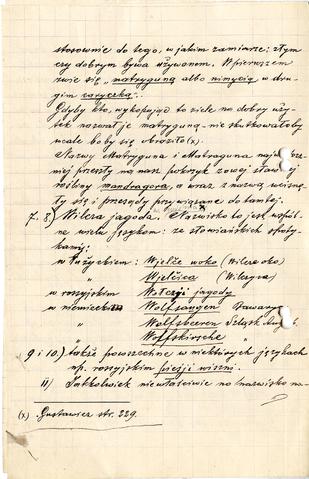 stosownie do tego, w jakim zamiarze: złym
czy dobrym bywa używanem. W pierwszem
zwie się „matryguną albo nimycią" w dru-
gim zaryczką."
Gdyby kto, wykopując to ziele na dobry uży-
tek nazwał je matryguną - nie skutkowałoby
wcale bo by się obraziło (x).
Nazwy Matryguna i Matraguna
przeszły na nasz pokrzyk z owej sławnej
rośliny mandragora, a wraz z nazwą
ty się i przesądy przywiązane do tamtej.
7-8.) Wilcza jagoda. Nazwisko to jest wspól-
ne wielu językom: ze słowiańskich spoty-
kamy:
w Łużyckiem: Wjelče woko (Wilcze oko)
" Wjelčica (Wilczyca)
w rossyjskim Wołczji jagody
w niemieckim Wolfsaugen Bawarya
" Wolfsbeeren Szląsk
" Wolfskirsche "
9 i 10.) także powszechne w niektórych językach
np. rossyjskim piesji wiszni.
11) Jakkolwiek niewłaściwie to nazwisko na-
(x) Gustawicz str. 229.